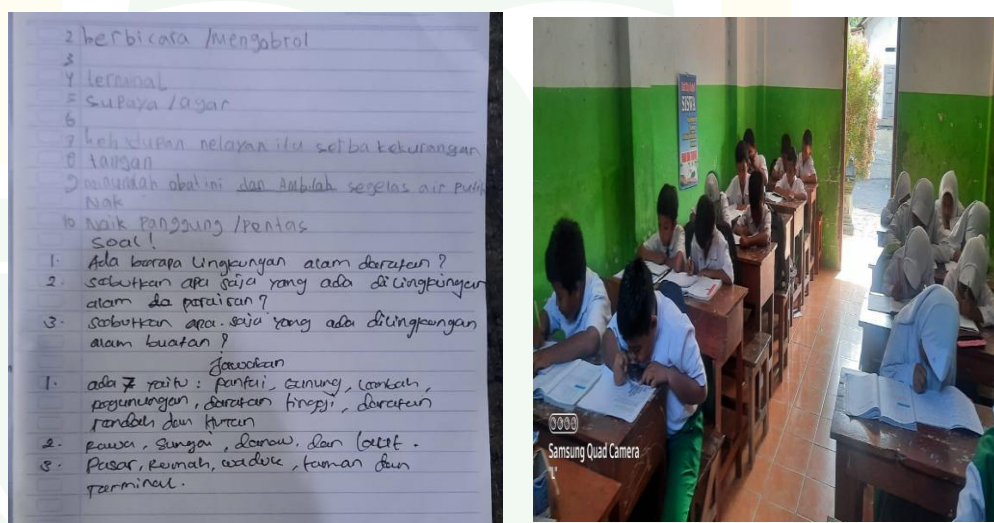 2 berbicara /mengobrol
3
4 terminal
5 supaya /agar
6
7 kehidupan nelayan itu serba kekurangan
8 tangan
9 minumlah obat ini dan Ambilah segelas air putih
Nak
10 Naik Panggung /Pentas
Soal!
1. Ada barapa lingkungan alam daratan?
2. sabutkan apa saja yang ada dilingkungan
alam da parairan?
3. sabutkan apa saja yang ada dilingkungan
alam buatan?
Jawaban
1. ada 7 yaitu: pantai, Gunung, Lambah,
pagunungan, daratan tinggi, daratan
randah dan Hutan
2. Rawa, Sungai, danau, dan laut.
3. Pasar, Rumah, waduk, taman dan
Terminal.
SISWA
Samsung Quad Camera